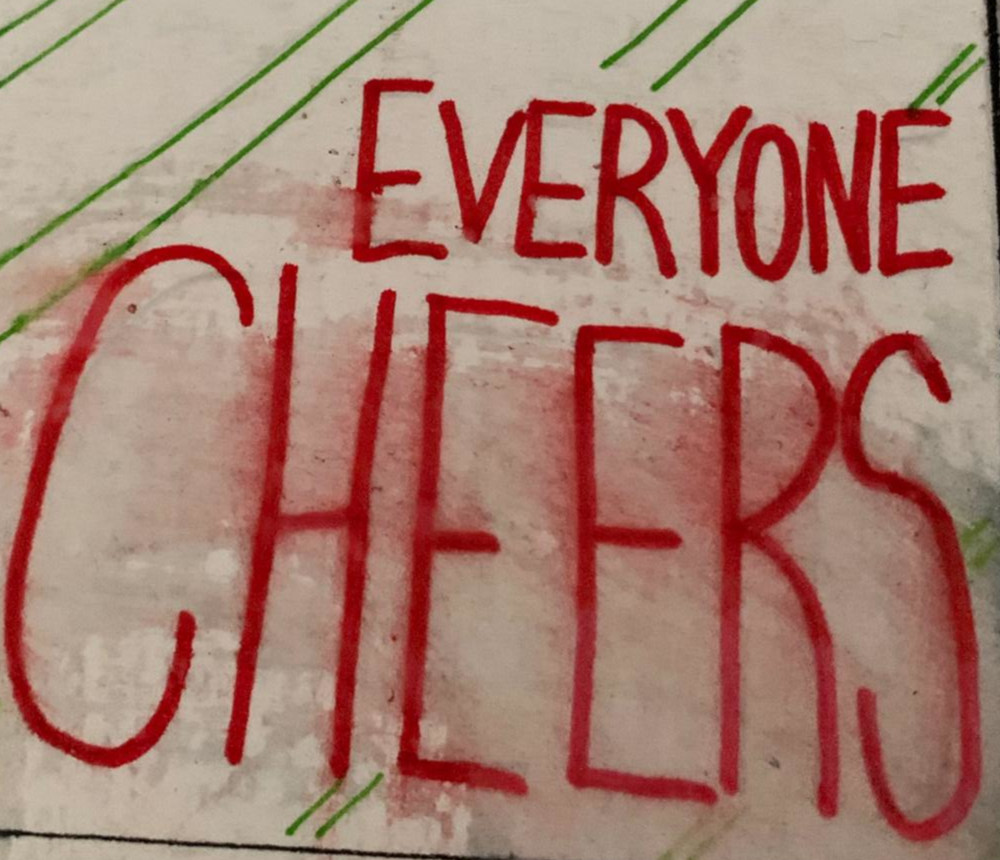 EVERYONE
CHEERS